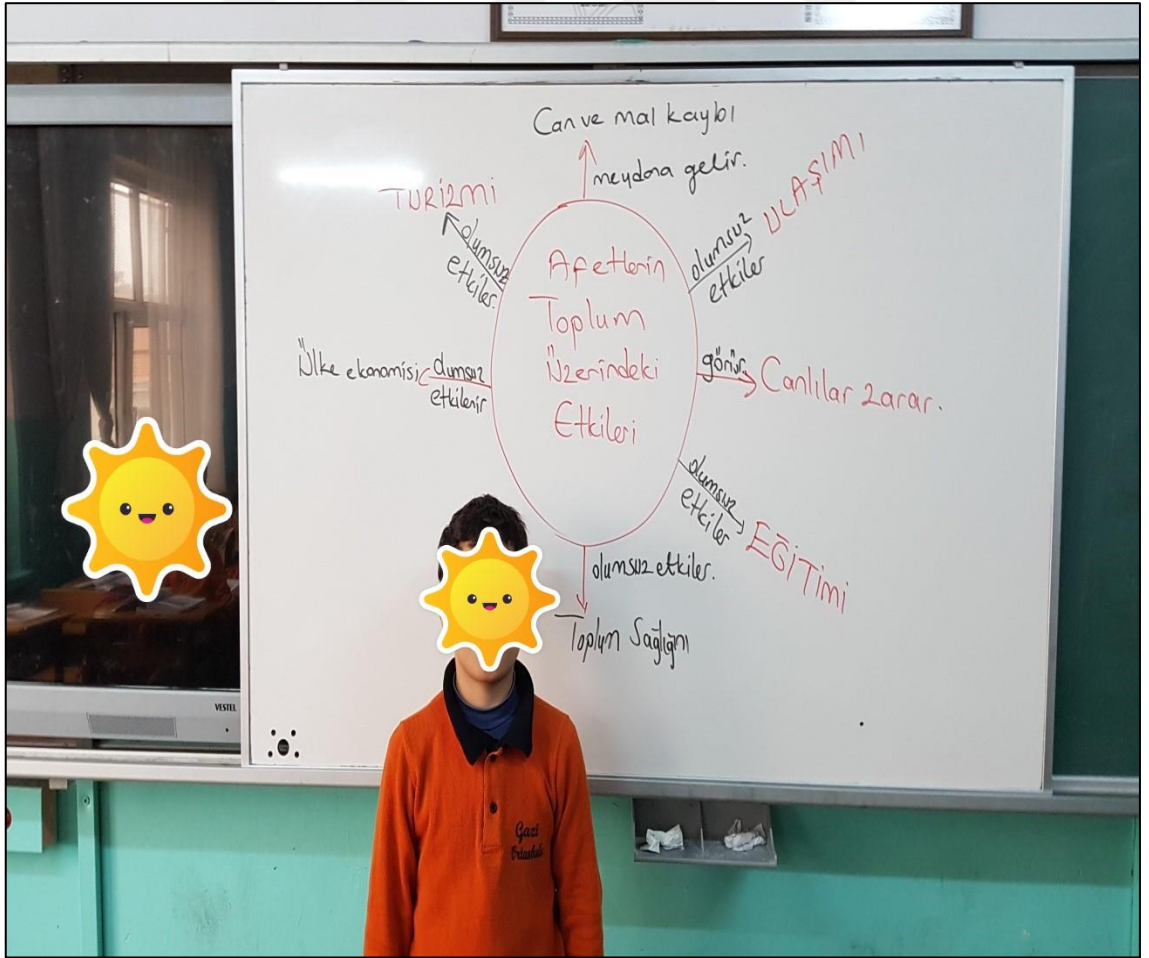 Can ve mal kaybı
meydana gelir.
TURİZMİ
olumsuz
etkiler.
ULAŞIMI
olumsuz
etkiler
Afetlerin
Toplum
Üzerindeki
Etkileri
Ülke ekonomisi
olumsuz
etkilenir
görür.
Canlılar zarar.
olumsuz
etkiler
EĞİTİMİ
olumsuz etkiler.
Toplum Sağlığını
VESTEL
Gazi
Ortaokulu